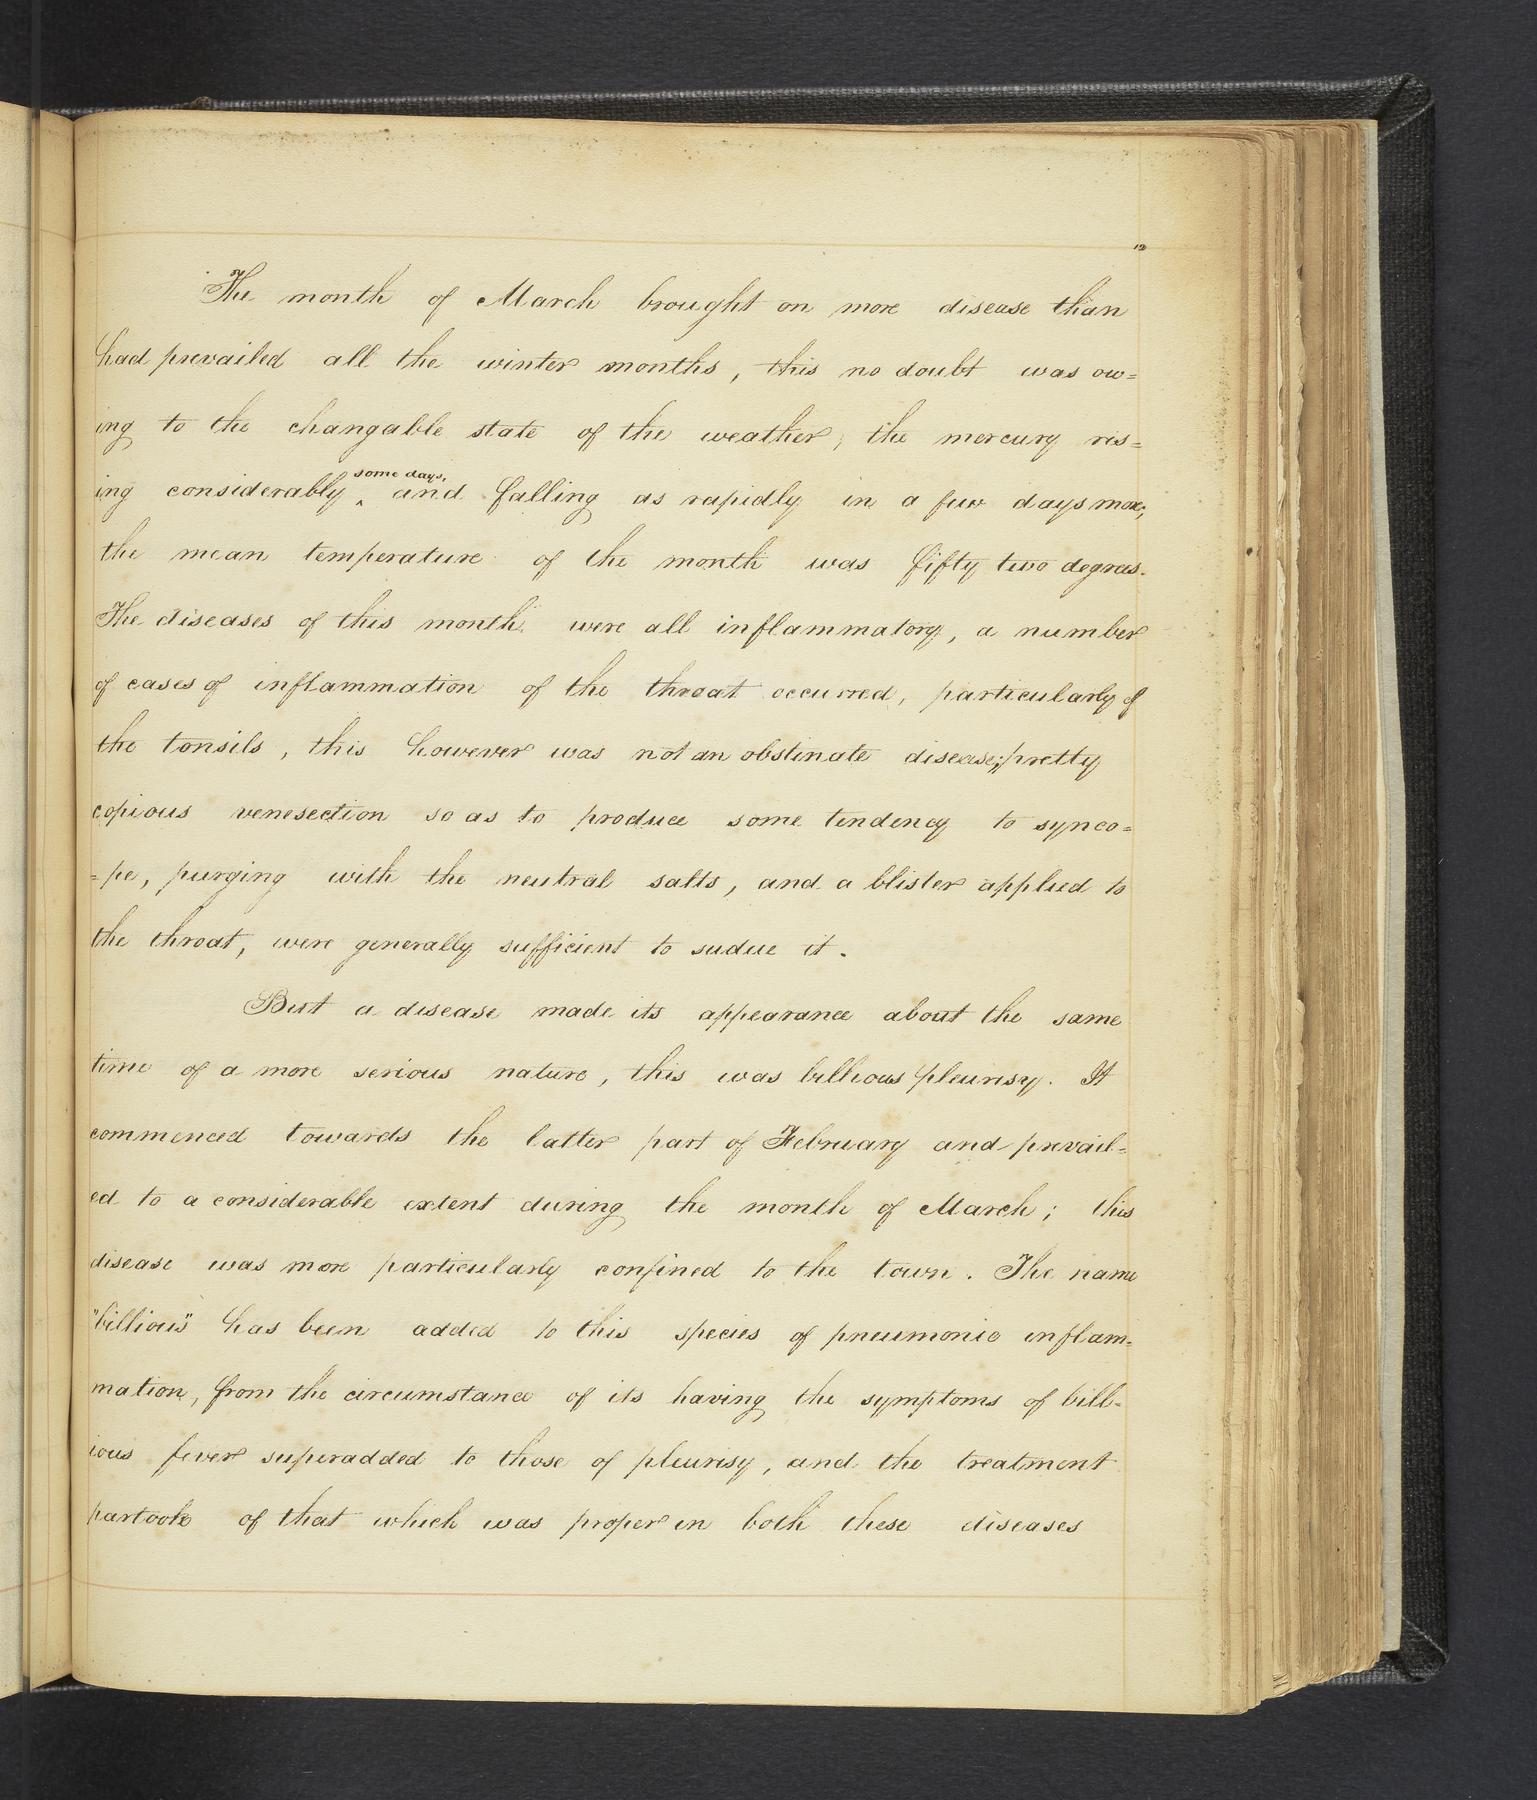 12
The month of March brought on more disease than
had prevailed all the winter months, this no doubt was ow=
ing to the changable state of the weather, the mercury ris=
some days,
ing considerably ‸ and falling as rapidly in a few days more;
the mean temperature of the month was fifty two degrees.
The diseases of this month were all inflammatory, a number
of cases of inflammation of the throat occurred, particularly of
the tonsils, this however was not an obstinate disease; pretty
copious venesection so as to produce some tendency to synco=
=pe, purging with the neutral salts, and a blister applied to
the throat, were generally sufficient to sudue it.
But a disease made its appearance about the same
time of a more serious nature, this was billious pleurisy. It
commenced towards the latter part of February and prevail=
ed to a considerable extent during the month of March; this
disease was more particularly confined to the town. The name
"billious" has been added to this species of pneumonic inflam=
mation, from the circumstance of its having the symptoms of bill=
ious fever superadded to those of pleurisy, and the treatment
partook of that which was proper in both these diseases